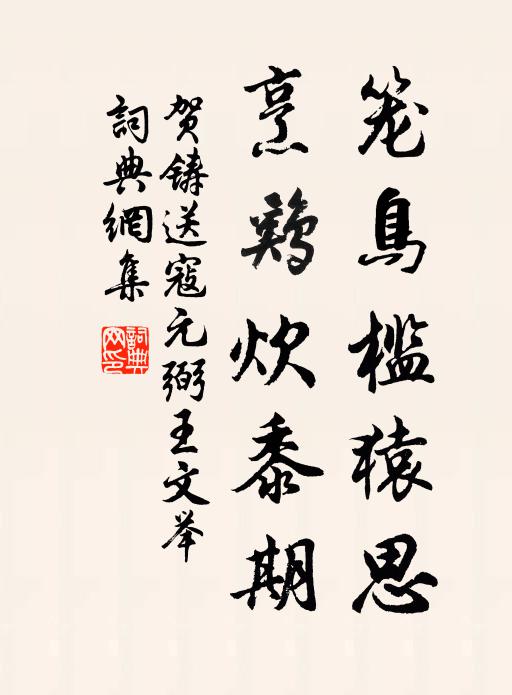 笼鸟槛猿思
烹鸡炊黍期
贺铸送寇元弼王文举
词典网集
詞典网印